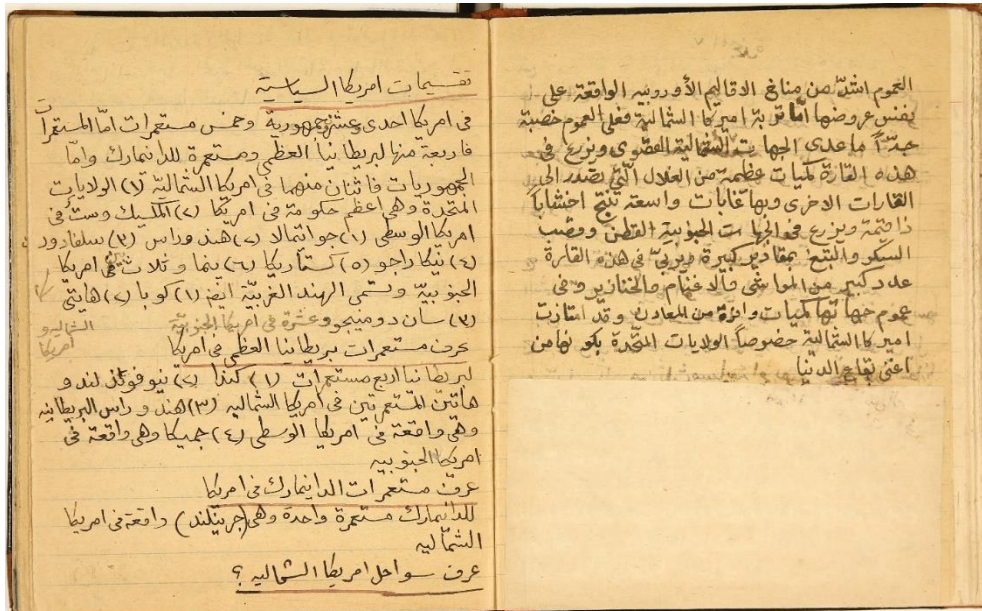 العموم اشدّ من مناخ الاقاليم الأوروبيه الواقعة على
نفس عروضها أمّا تربة اميركا الشمالية فعلى العموم خصبة
جدّاً ماعدى الجهات الشمالية القصوى ويزرع فى
هذه القارة كميات عظيمة من الغلال الّتى تصدر الى
القارات الاخرى وبها غابات واسعة تنتج اخشاباً
ذا قيمة ويزرع فى الجهات الجنوبية القطن وقصب
السكر والتبغ بمقادير كبيرة ويربّى فى هذه القارة
عدد كبير من المواشى والاغنام والخنازير وفى
عموم جهاتها كميات وافرة من المعادن وقد امتازت
اميركا الشمالية خصوصاً الولايات المتّحدة بكونها من
اغنى بقاع الدنيا
تقسيمات امريكا السياسية
فى امريكا احدى وعشرين جمهورية وخمس مستعمرات امّا المستعمرات
فاربعة منها لبريطانيا العظمى ومستعمرة للدانيمارك وامّا
الجمهوريات فاثنان منهما فى امريكا الشمالية (١) الولايات
المتحدة وهى اعظم حكومة فى امريكا (٢) المكسيك وستّ فى
امريكا الوسطى (١) جواتمالا (٢) هندوراس (٣) سلفادور
(٤) نيكاراجو (٥) كستاريكا (٦) بنما وثلاث فى امريكا
الجنوبيّة وتسمى الهند الغربيّة ايضاً (١) كوبا (٢) هايتى
(٣) سان دومينجو وعشرة فى امريكا الجنوبيّة
الشمالية و
امريكا
عرف مستعمرات بريطانيا العظمى فى امريكا
لبريطانيا اربع مستعمرات (١) كندا (٢) نيوفوندلند و
هاتين المستعمرتين فى امريكا الشماليه (٣) هندوراس البريطانيه
وهى واقعة فى امريكا الوسطى (٤) جميكا وهى واقعة فى
امريكا الجنوبيه
عرف مستعمرات الدانيمارك فى امريكا
للدانيمارك مستعمرة واحدة وهى (جرينلند) واقعة فى امريكا
الشماليه
عرف سواحل امريكا الشماليه ؟